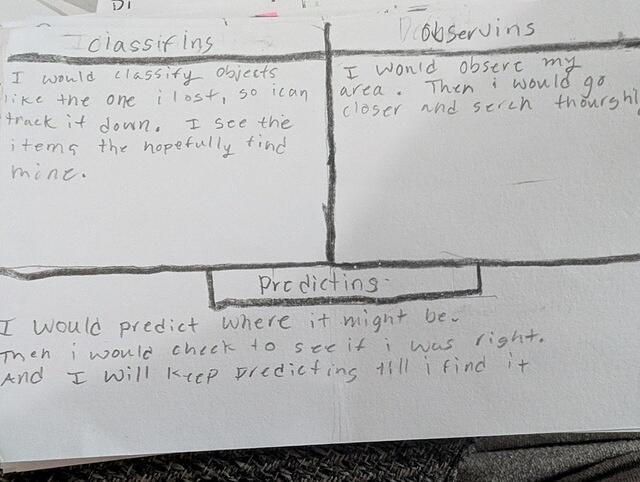 DI
Classifins
I would classify objects
like the one i lost, so ican
track it down. I see the
items the hopefully find
mine.
observins
I would obserc my
area. Then i would go
closer and serch thourghl
Predicting
I would predict where it might be.
Then i would check to see if i was right.
And I will keep predicting till i find it